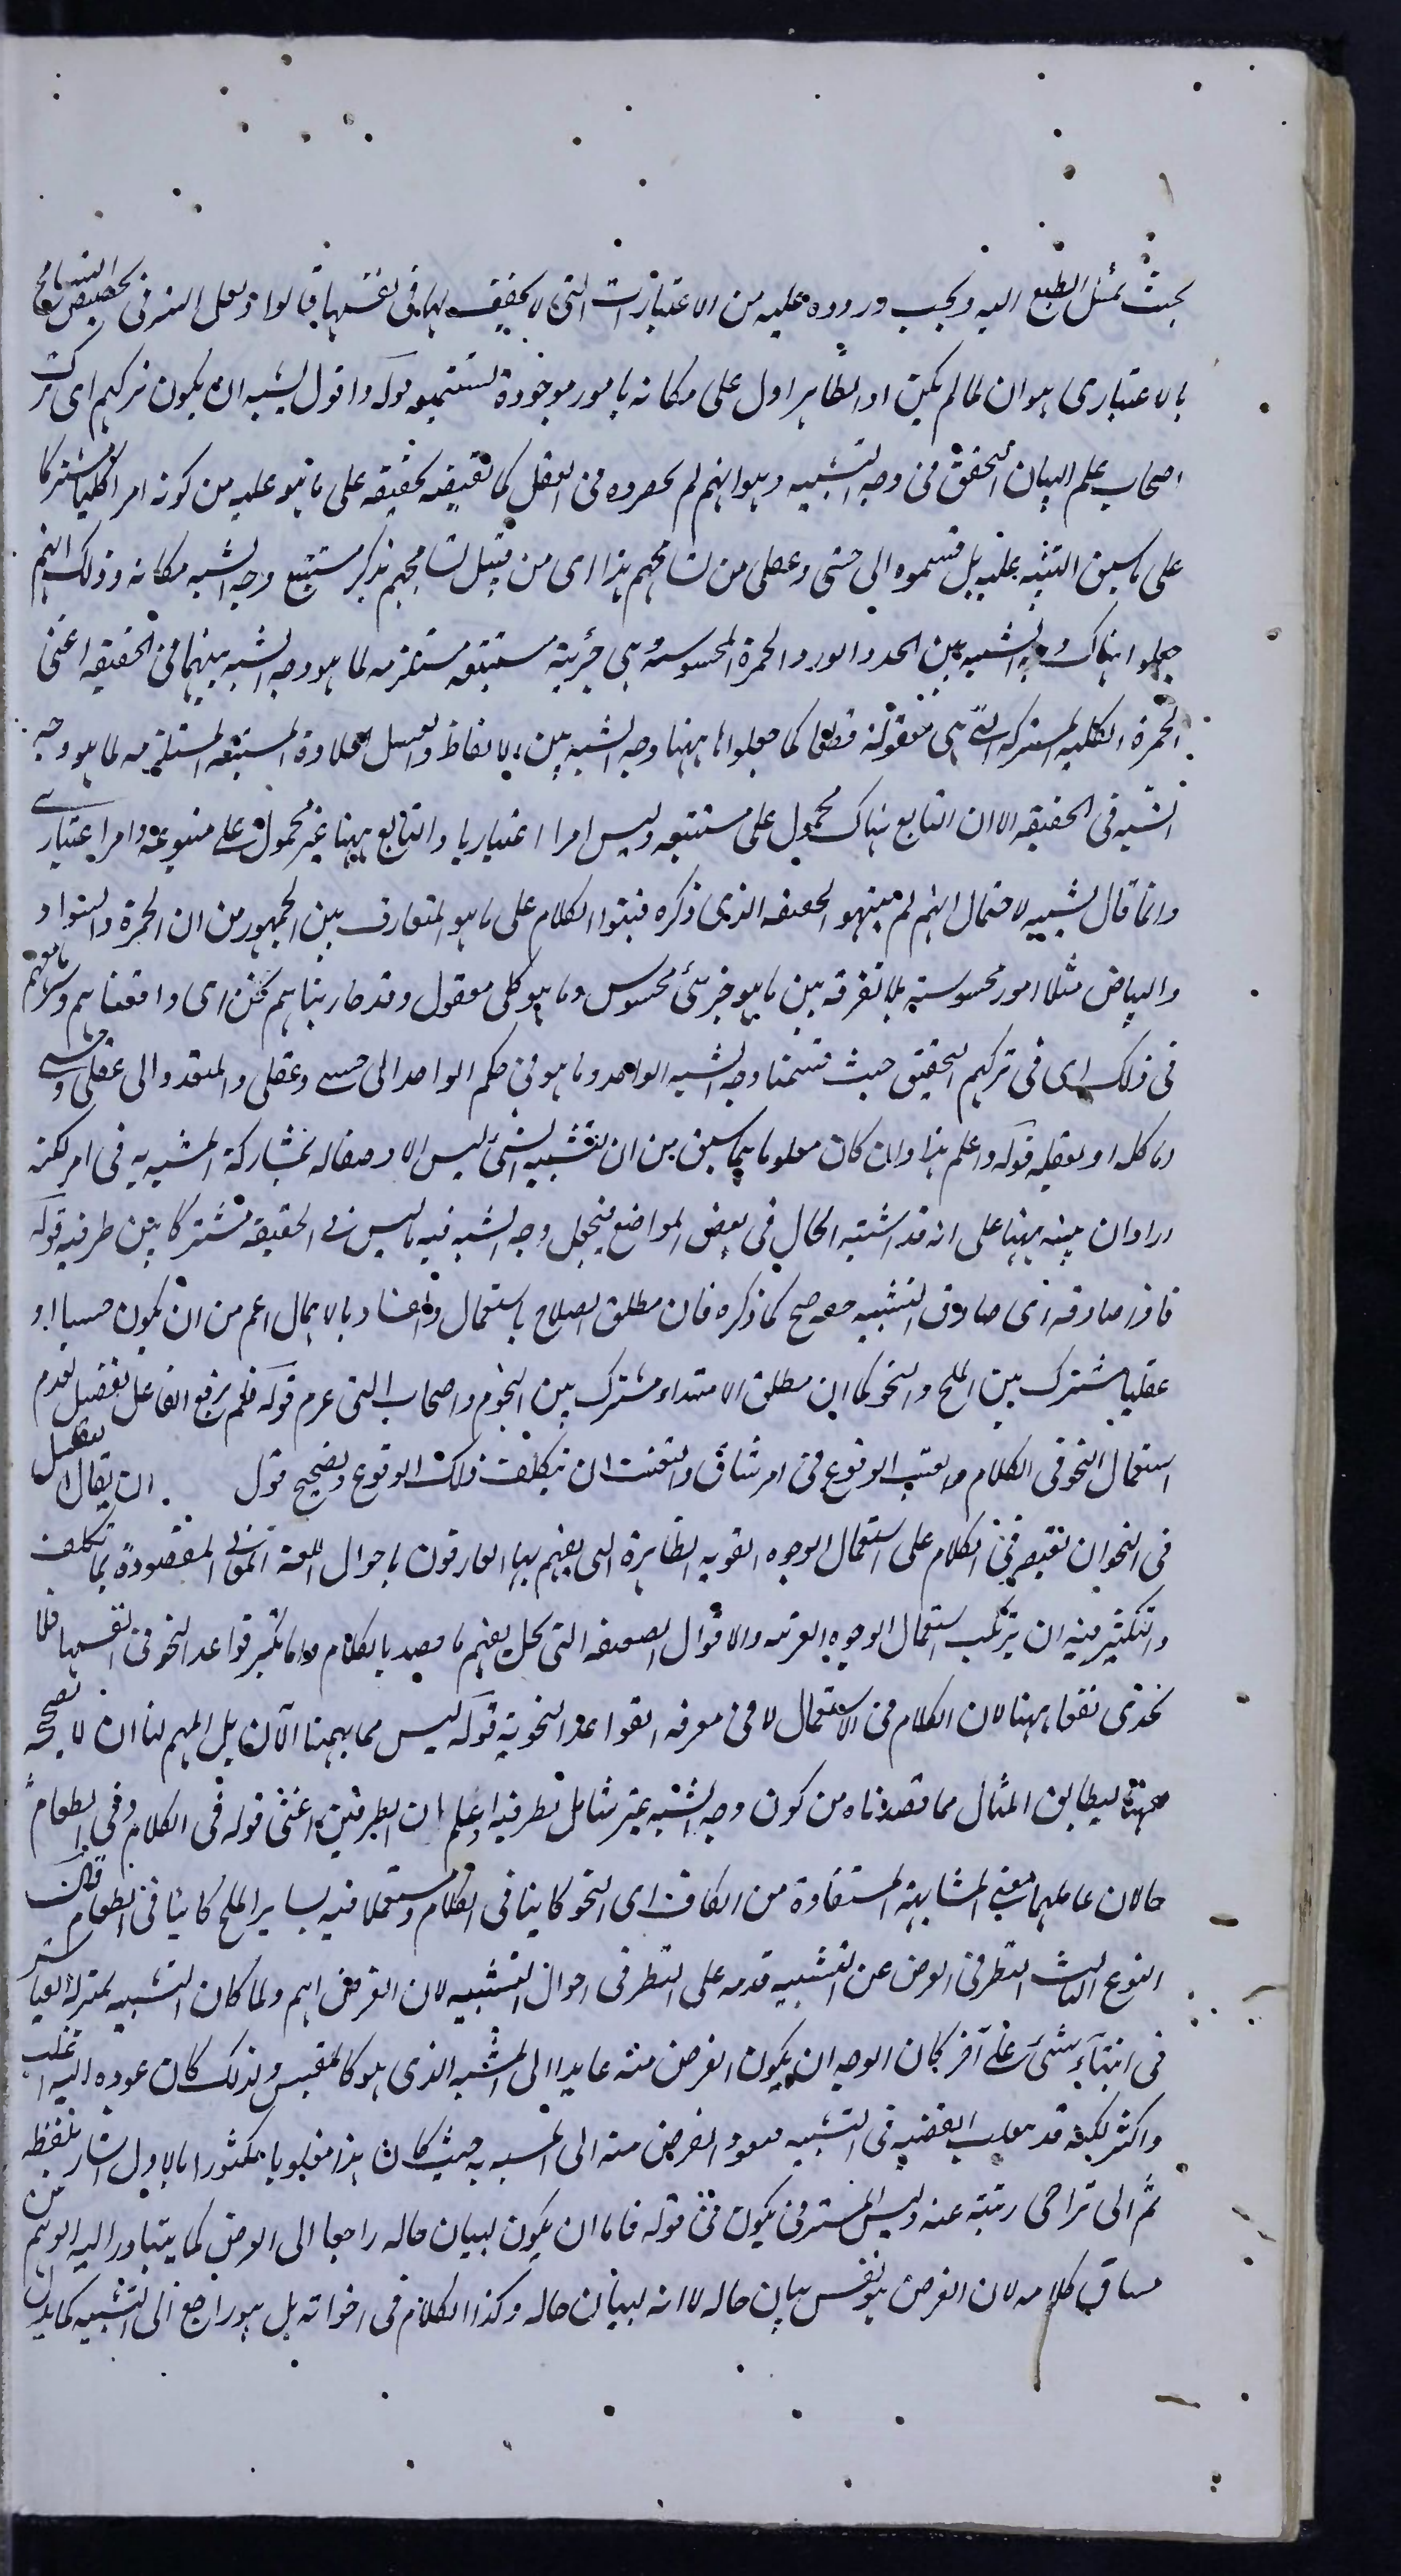 بحيث يميل الطبع اليه ويجب وروده عليه من الاعتبارات التى لا تحقق لها فى نفسها قالوا ولعل السر فى تخصيص التسامح
بالاعتبارى هو ان لما لم يكن اد الظاهر اول على مكانه بامور موجودة تستتبعه قوله واقول يشبه ان يكون تركهم اى ترك
اصحاب علم البيان التحقيق فى وجه التشبيه وهو انهم لم يحصروه فى العقلى كما تقتضيه تحقيقه على ما هو عليه من كونه امرا كليا مشتركا
على ما سبق التنبيه عليه بل قسموه الى حسى وعقلى من تسامحهم هذا اى من قبيل تسامحهم بذكر مستتبع وجه الشبه مكانه وذلك انهم
جعلوا هناك وجه الشبه بين الخد والورد الحمرة المحسوسة وهى جزئية مستتبعة مستلزمة لما هو وجه الشبه بينهما فى الحقيقة اعنى
الحمرة الكلية المشتركة التى هى معقولة قطعا كما جعلوا ههنا وجه الشبه بين الالفاظ والعسل الحلاوة المستتبعة المستلزمة لما هو وجه
الشبه فى الحقيقة الا ان التابع هناك محمول على مستتبعه وليس امرا اعتباريا والتابع ههنا غير محمول على متبوعه وامر اعتبارى
وانما قال يشبه لاحتمال انهم لم ينتبهوا لحقيقة الذى ذكره فبنوا الكلام على ما هو المتعارف بين الجمهور من ان الحمرة والسواد
والبياض مثلا امور محسوسة بلا تفرقة بين ما هو جزئى محسوس وما هو كلى معقول وقد جاريناهم نحن اى وافقناهم وسامحهم
فى ذلك اى فى تركهم التحقيق حيث قسمنا وجه الشبه الواحد وما هو فى حكم الواحد الى حسى وعقلى والمتعدد الى عقلى وحسى
وما كله او بعضه قوله واعلم هذا وان كان معلوما بما سبق من ان تشبيه الشئ ليس الا وصفا له بمشاركة المشبه به فى امر لكنه
اراد ان ينبه ههنا على انه قد اشتبه الحال فى بعض المواضع فيجعل وجه الشبه فيه ما ليس فى الحقيقة مشتركا بين طرفيه قوله
فاذا صادفه اى صادف التشبيه صح كما ذكره فان مطلق الصلاح باستعمال والفساد بالاهمال اعم من ان يكون حسيا او
عقليا مشترك بين الملح والنحو كما ان مطلق الاهتداء مشترك بين النجوم واصحاب النبى عرم قوله فلم يرفع الفاعل تفضيل لعدم
استعمال النحو فى الكلام والعتب الوقوع فى امر شاق والتعنت ان يتكلف ذلك الوقوع وتصحيح قول ان يقال التقليل
فى النحو ان يقتصر فى الكلام على استعمال الوجوه القوية الظاهرة التى يفهم بها العارفون باحوال اللغة المعانى المقصودة بلا تكلف
والتكثير فيه ان يرتكب استعمال الوجوه الغريبة والاقوال الضعيفة التى يخل بفهم ما قصد بالكلام واما تكثير قواعد النحو فى انفسها فلا
يجدى نفعا ههنا لان الكلام فى الاستعمال لا فى معرفة القواعد النحوية قوله ليس مما يهمنا الآن بل المهم لنا ان لا نصححه
ههنا ليطابق المثال مما قصدناه من كون وجه الشبه غير شامل لطرفيه واعلم ان الظرفين اعنى قوله فى الكلام وفى الطعام
حالان عاملهما معنى المشابهة المستفادة من الكاف اى النحو كائنا فى الكلام ومستعملا فيه يساير الملح كائنا فى الطعام قال
النوع الثالث النظر فى الغرض عن التشبيه قدمه على النظر فى احوال التشبيه لان الغرض اهم ولما كان التشبيه بمنزلة القياس
فى ابتناء شئ على آخر كان الوجه ان يكون الغرض منه عايدا الى المشبه الذى هو كالمقيس ولذلك كان عوده اليه اغلب
واكثر لكنه قد يقلب القضية فى التشبيه فيعود الغرض منه الى المشبه به حيث كان هذا مغلوبا مكثورا بالاول اشار بلفظة
ثم الى تراخى رتبته عنه وليس المستتر فى يكون فى قوله فاما ان يكون لبيان حاله راجعا الى الغرض كما يتبادر اليه الوهم من
مساق كلامه لان الغرض هو نفس بيان حاله لا انه لبيان حاله وكذا الكلام فى اخواته بل هو راجع الى التشبيه كما يدل